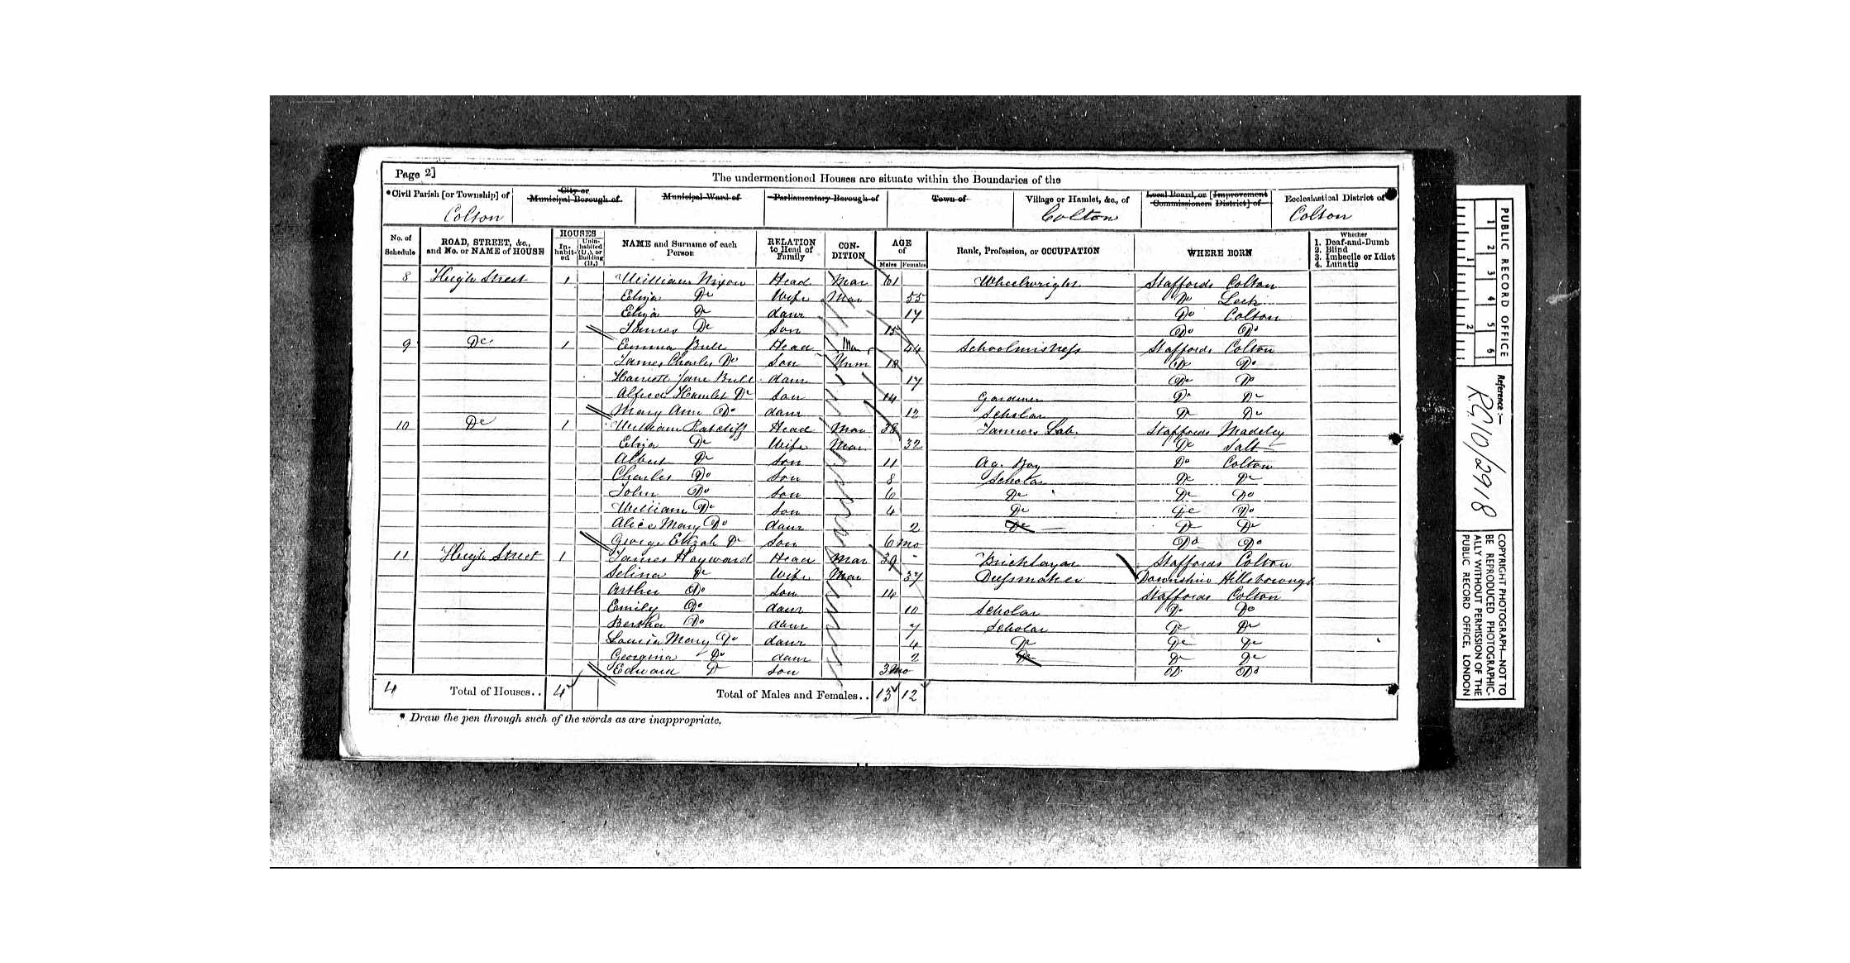 Page 2]
The undermentioned Houses are situate within the Boundaries of the
*Civil Parish [or Township] of Colton
City or Municipal Borough of
Municipal Ward of
Parliamentary Borough of
Town of
Village or Hamlet, &c., of Colton
Local Board, or [Improvement Commissioners District] of
Ecclesiastical District of Colton
No. of Schedule
ROAD, STREET, &c., and No. or NAME of HOUSE
HOUSES
In-habit-ed
Unin-habited (U.), or Building (B.)
NAME and Surname of each Person
RELATION to Head of Family
CON-DITION
AGE of
Males Females
Rank, Profession, or OCCUPATION
WHERE BORN
Whether
1. Deaf-and-Dumb
2. Blind
3. Imbecile or Idiot
4. Lunatic
8 High Street 1 William Nixon Head Mar 61 Wheelwright Staffords Colton
Eliza Do Wife Mar 55 Do Leek
Eliza Do daur 17 Do Colton
James Do Son 15 Do Do
9 Do 1 Emma Bull Head 54 Schoolmistress Staffords Colton
James Charles Do Son Unm 18 Do Do
Harriett Jane Bull daur 17 Do Do
Alfred Hamlet Do Son 14 Gardener Do Do
Mary Ann Do daur 12 Scholar Do Do
10 Do 1 William Ratcliff Head Mar 38 Tanners Lab Staffords Madeley
Eliza Do Wife Mar 32 Do Salt
Albert Do Son 11 Ag. Boy Do Colton
Charles Do Son 8 Scholar Do Do
John Do Son 6 Do Do Do
William Do Son 4 Do Do Do
Alice Mary Do daur 2 Do Do Do
George Elijah Do Son 6 mo Do Do
11 High Street 1 James Hayward Head Mar 39 Bricklayer Staffords Colton
Selina Do Wife Mar 37 Dressmaker Downshire Hillsborough
Arthur Do Son 14 Staffords Colton
Emily Do daur 10 Scholar Do Do
Bertha Do daur 7 Scholar Do Do
Louisa Mary Do daur 4 Do Do Do
Georgina Do daur 2 Do Do Do
Edward Do Son 3 mo Do Do
4 Total of Houses.. 4 Total of Males and Females.. 13 12
* Draw the pen through such of the words as are inappropriate.
PUBLIC RECORD OFFICE
1 2 3 4 5 6
1 2
Reference :-
RG10/2918
COPYRIGHT PHOTOGRAPH—NOT TO
BE REPRODUCED PHOTOGRAPHIC-
ALLY WITHOUT PERMISSION OF THE
PUBLIC RECORD OFFICE, LONDON